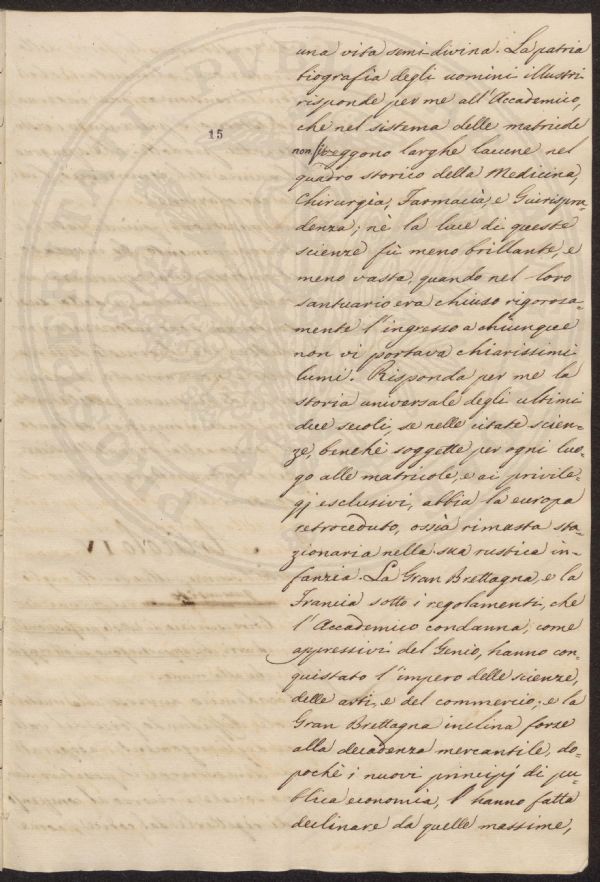 una vita semi-divina. La patria
biografia degli uomini illustri
risponde per me all'Accademico,
15
che nel sistema delle matricole
non si veggono larghe lacune nel
quadro storico della Medicina,
Chirurgia, Farmacia, e Guirispru=
denza; nè la luce di queste
scienze fù meno brillante, e
meno vasta, quando nel loro
santuario era chiuso rigorosa=
mente l'ingresso a chiunque
non vi portava chiarissimi
lumi. Risponda per me la
storia universale degli ultimi
due secoli, se nelle citate scien=
ze, benchè soggette per ogni luo=
go alle matricole, e ai privile=
gj esclusivi, abbia la europa
retroceduto, ossia rimasta sta=
zionaria nella sua rustica in=
fanzia. La Gran Brettagna, e la
Francia sotto i regolamenti, che
l'Accademico condanna, come
oppressivi del Genio, hanno con=
quistato l'impero delle scienze,
delle arti, e del commercio; e la
Gran Brettagna inclina forse
alla decadenza mercantile, do=
pochè i nuovi principj di pu=
blica economia, l'hanno fatta
declinare da quelle massime,